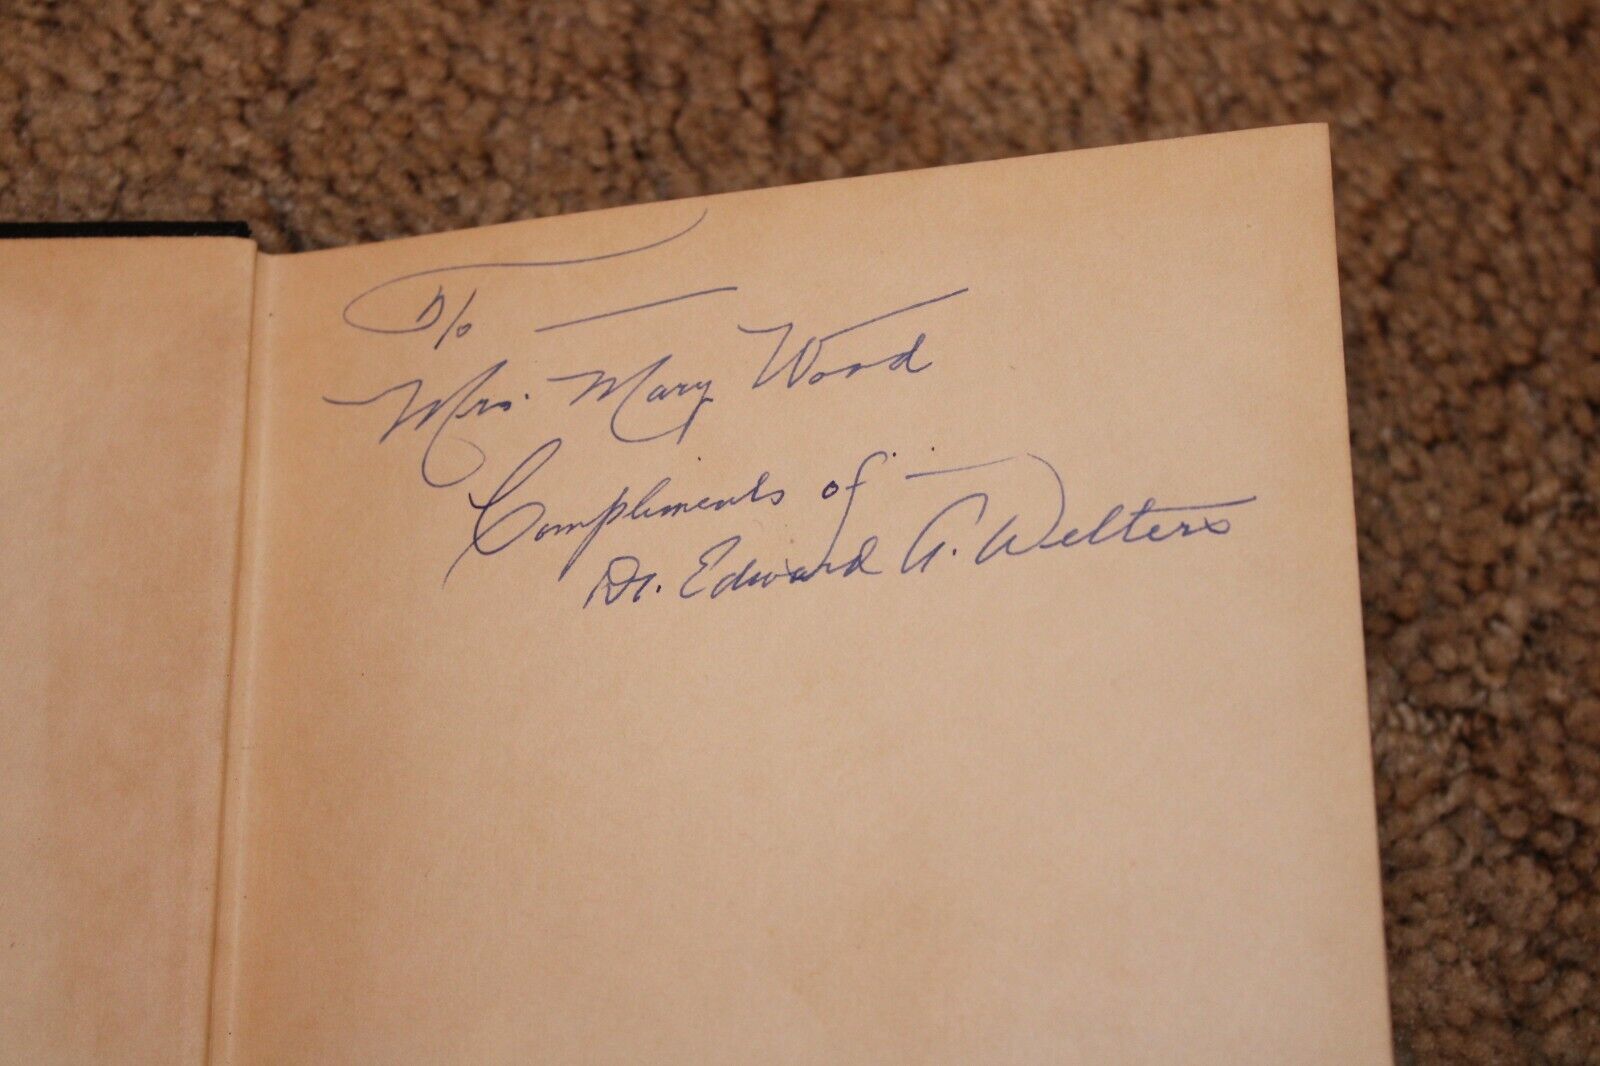 To —
Mrs. Mary Wood
Compliments of —
Dr. Edward A. Welters